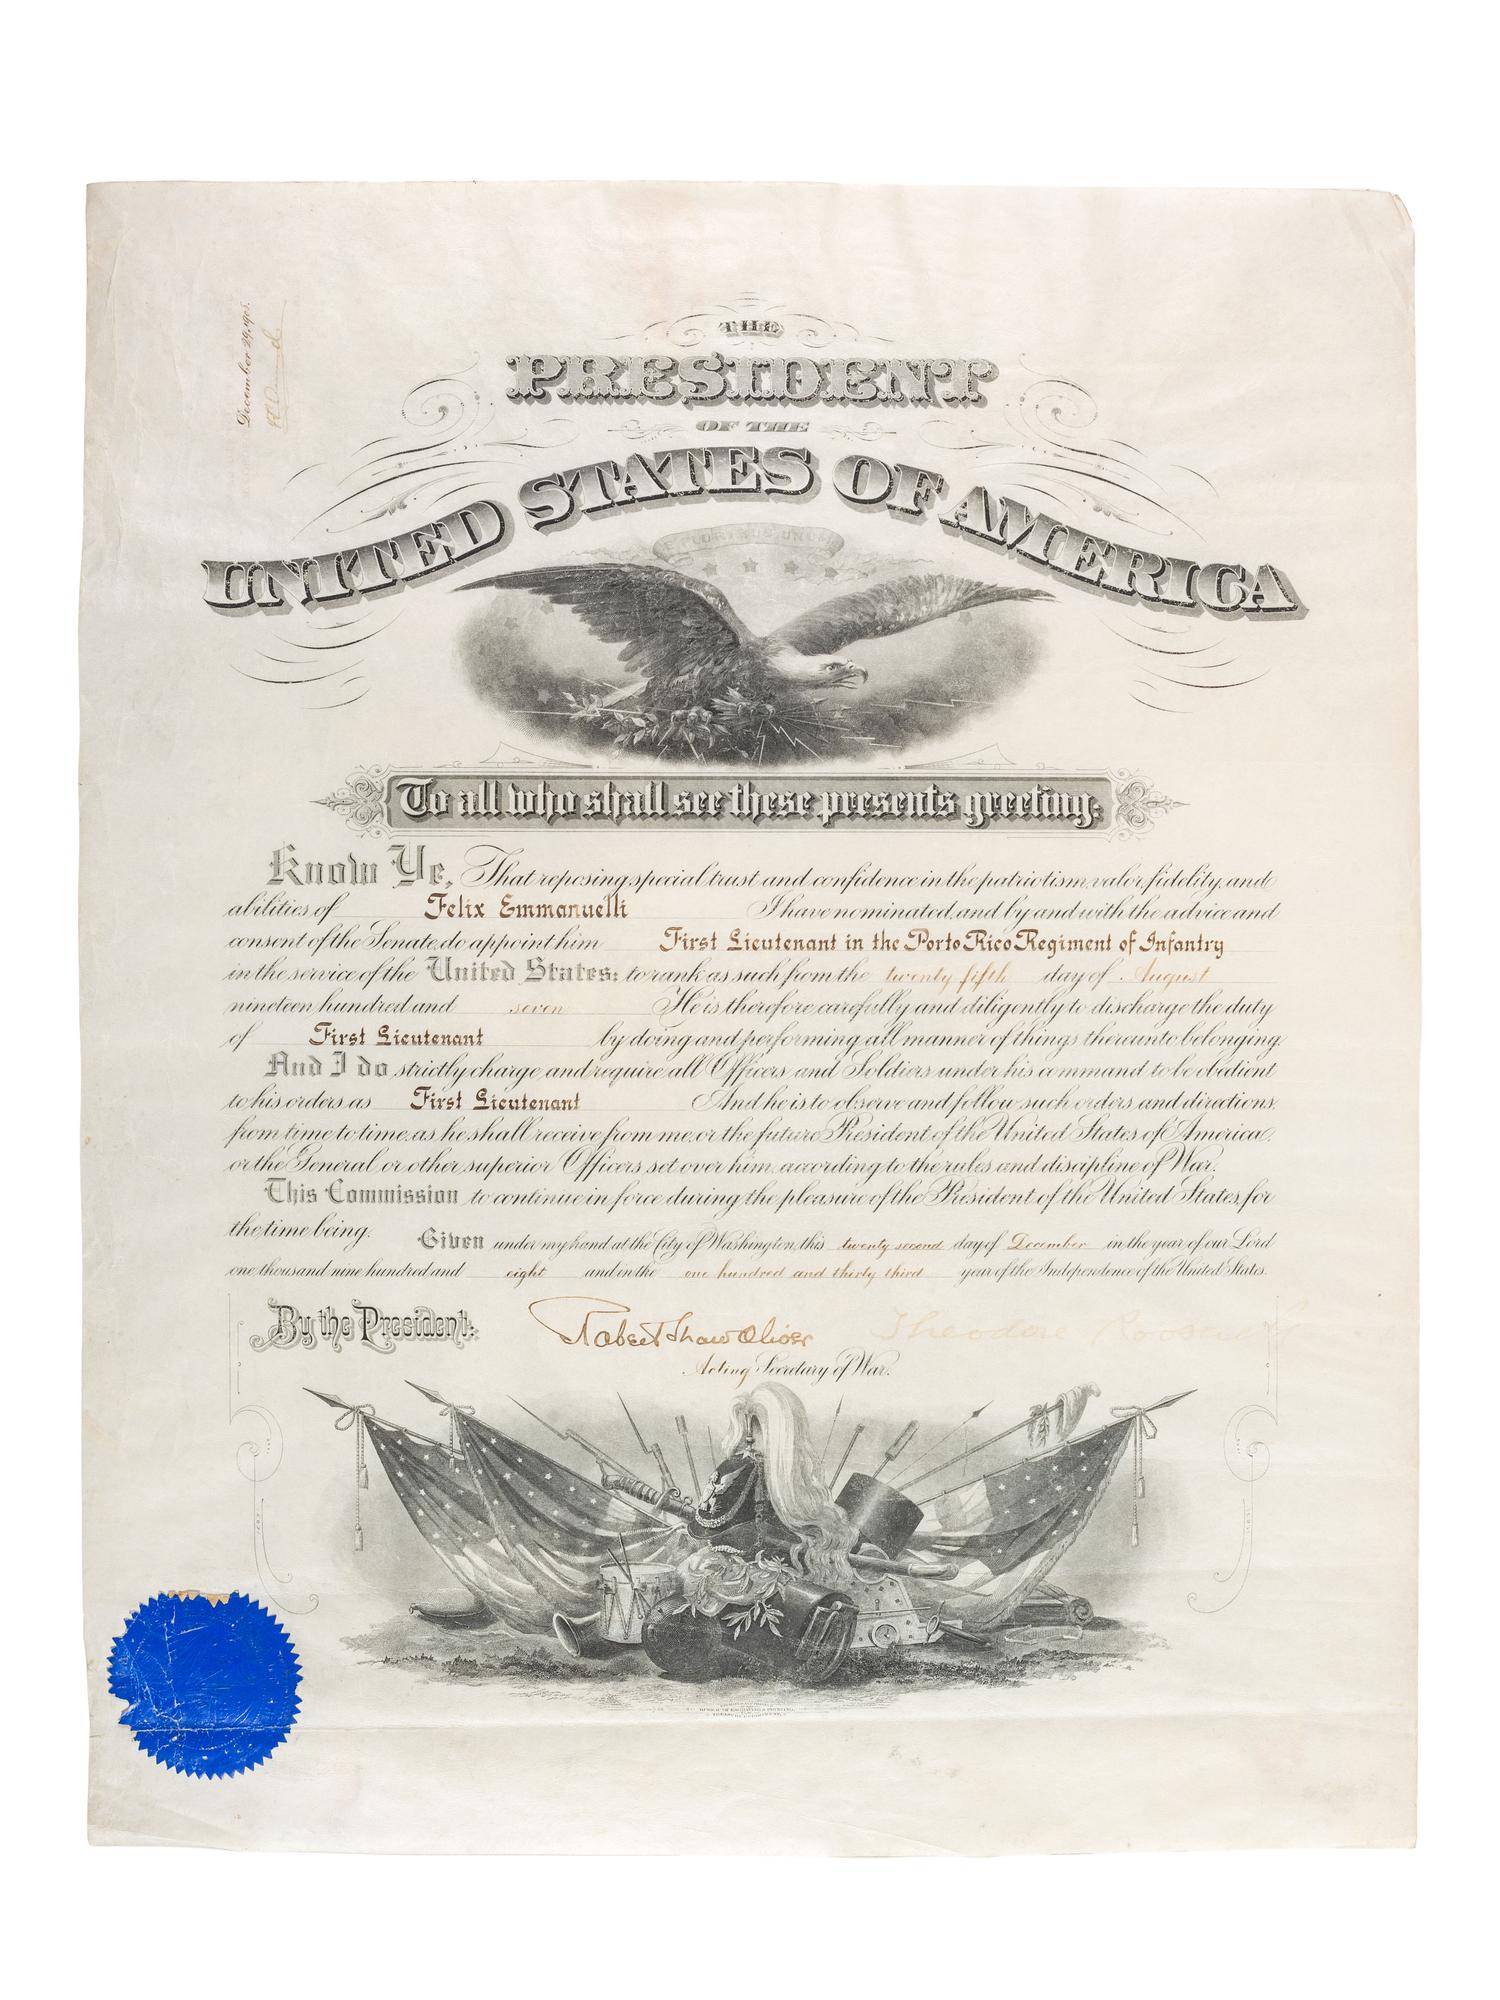 December 29, 1908.
THE
PRESIDENT
OF THE
UNITED STATES OF AMERICA
E PLURIBUS UNUM
To all who shall see these presents greeting:
Know Ye, That reposing special trust and confidence in the patriotism, valor, fidelity, and
abilities of Felix Emmanuelli I have nominated, and by and with the advice and
consent of the Senate, do appoint him First Lieutenant in the Porto Rico Regiment of Infantry
in the service of the United States: to rank as such from the twenty fifth day of August
nineteen hundred and seven He is therefore carefully and diligently to discharge the duty
of First Lieutenant by doing and performing all manner of things thereunto belonging.
And I do strictly charge and require all Officers and Soldiers under his command to be obedient
to his orders as First Lieutenant And he is to observe and follow such orders and directions,
from time to time, as he shall receive from me, or the future President of the United States of America,
or the General or other superior Officers set over him, according to the rules and discipline of War.
This Commission to continue in force during the pleasure of the President of the United States, for
the time being.
Given under my hand at the City of Washington, this twenty second day of December in the year of our Lord
one thousand nine hundred and eight and in the one hundred and thirty third year of the Independence of the United States.
By the President: Robert Shaw Oliver Theodore Roosevelt
Acting Secretary of War.
BUREAU OF ENGRAVING & PRINTING,
TREASURY DEPARTMENT.